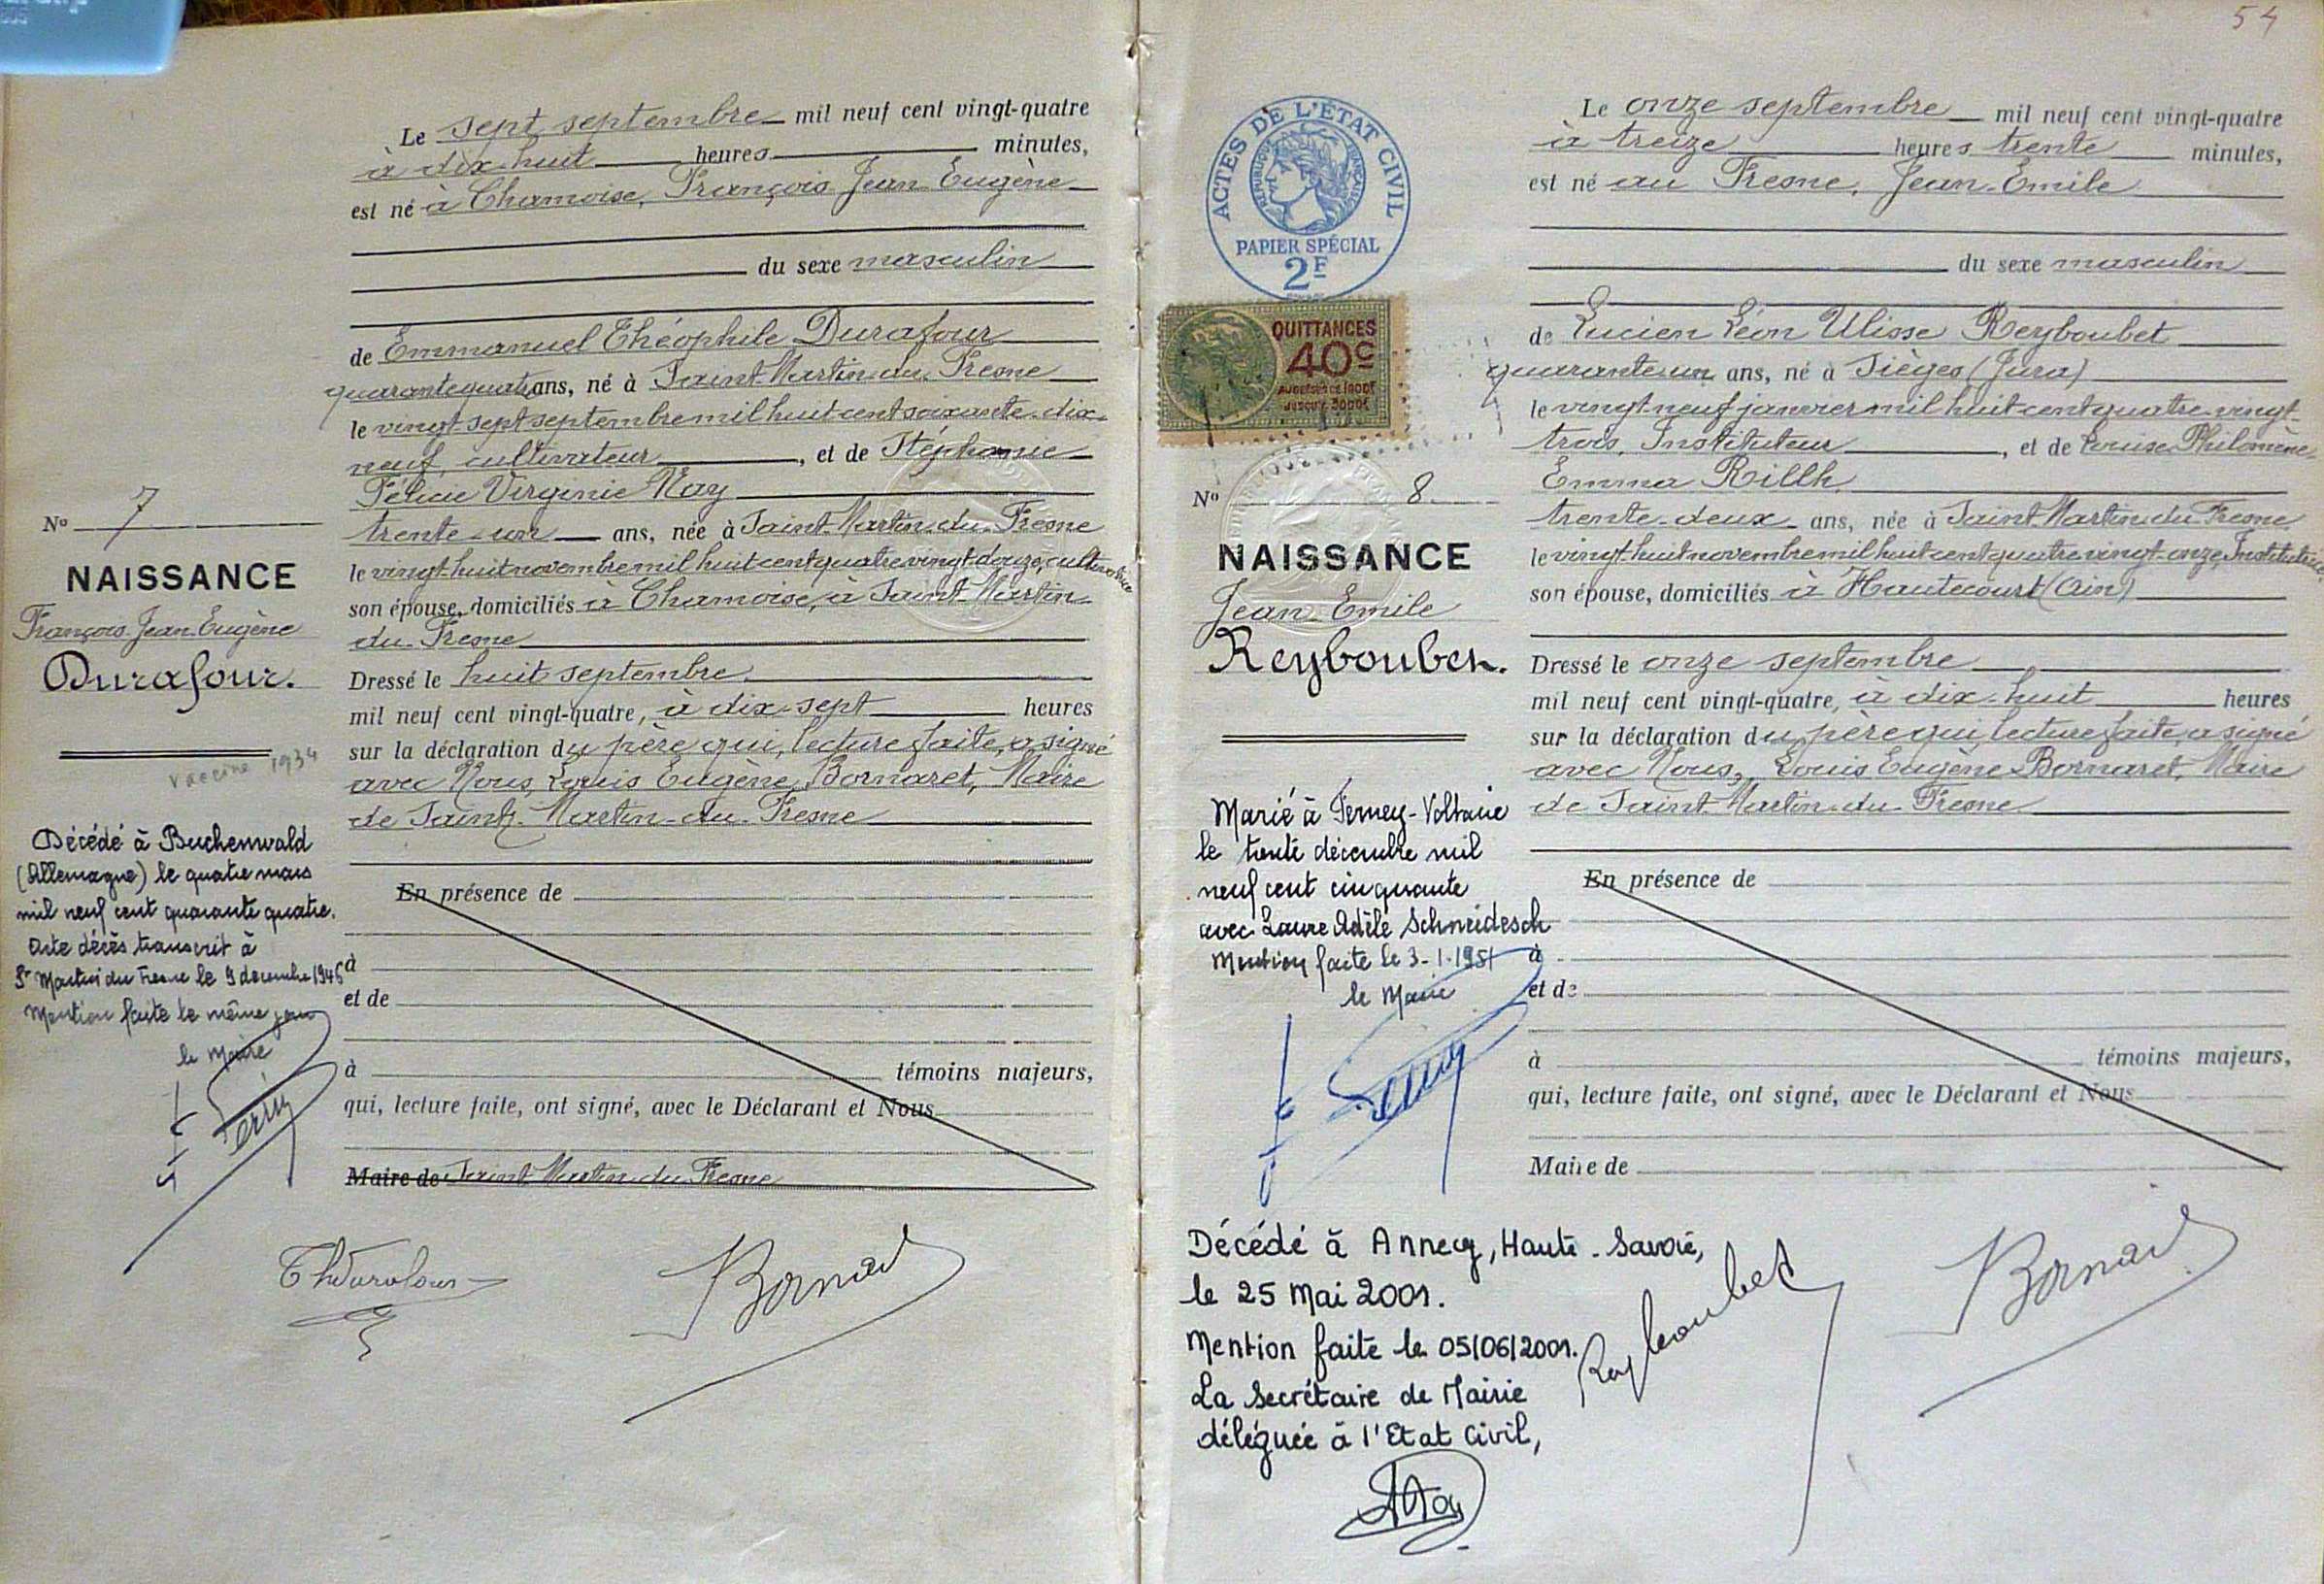 Le sept septembre mil neuf cent vingt-quatre
à dix-huit heures minutes,
est né à Chamoise, François Jean Eugène
du sexe masculin
de Emmanuel Théophile Durafour
quarante quatre ans, né à Saint-Martin-du-Fresne
le vingt-sept septembre mil huit cent soixante-dix-
neuf, cultivateur, et de Stéphanie
Félicie Virginie Nay
trente-un ans, née à Saint-Martin-du-Fresne
le vingt-huit novembre mil huit cent quatre vingt-douze, cultivatrice
son épouse, domiciliés à Chamoise, à Saint-Martin
du-Fresne
Dressé le huit septembre
mil neuf cent vingt-quatre, à dix-sept heures
sur la déclaration du père qui, lecture faite, a signé
avec Nous, Louis Eugène Bornaret, Maire
de Saint-Martin-du-Fresne
En présence de
à
et de
à témoins majeurs,
qui, lecture faite, ont signé, avec le Déclarant et Nous
Maire de Saint Martin du Fresne
No 7
NAISSANCE
François Jean Eugène
Durafour.
vaccine 1934
Décédé à Buchenwald
(Allemagne) le quatre mars
mil neuf cent quarante quatre.
Acte décès transcrit à
St Martin du Fresne le 9 décembre 1946
Mention faite le même jour
le Maire
Perrin
ThDurafour
Bornaret
54
ACTES DE L'ÉTAT CIVIL
RÉPUBLIQUE FRANÇAISE
PAPIER SPÉCIAL
2F
QUITTANCES
40c
AU DESSUS DE 1000F
JUSQU'A 3000F
Le onze septembre mil neuf cent vingt-quatre
à treize heures trente minutes,
est né au Fresne, Jean-Emile
du sexe masculin
de Lucien Léon Ulisse Reyboubet
quarante-un ans, né à Sièges (Jura)
le vingt neuf janvier mil huit cent quatre-vingt-
trois, Instituteur, et de Louise Philomène
Emma Rillh
trente-deux ans, née à Saint Martin du Fresne
le vingt-huit novembre mil huit cent quatre vingt-onze, Institutrice
son épouse, domiciliés à Hautecourt (Ain)
Dressé le onze septembre
mil neuf cent vingt-quatre, à dix-huit heures
sur la déclaration du père qui, lecture faite, a signé
avec Nous, Louis Eugène Bornaret, Maire
de Saint-Martin-du-Fresne
En présence de
à
et de
à témoins majeurs,
qui, lecture faite, ont signé, avec le Déclarant et Nous
Maire de
No 8
NAISSANCE
Jean-Emile
Reyboubet.
Marié à Ferney-Voltaire
le trente décembre mil
neuf cent cinquante
avec Laure Adèle Schneidesch
Mention faite le 3-1-1951
le Maire
Perrin
Décédé à Annecy, Haute-Savoie,
le 25 Mai 2001.
Mention faite le 05/06/2001.
La Secrétaire de Mairie
déléguée à l'Etat Civil,
Reyboubet
Bornaret